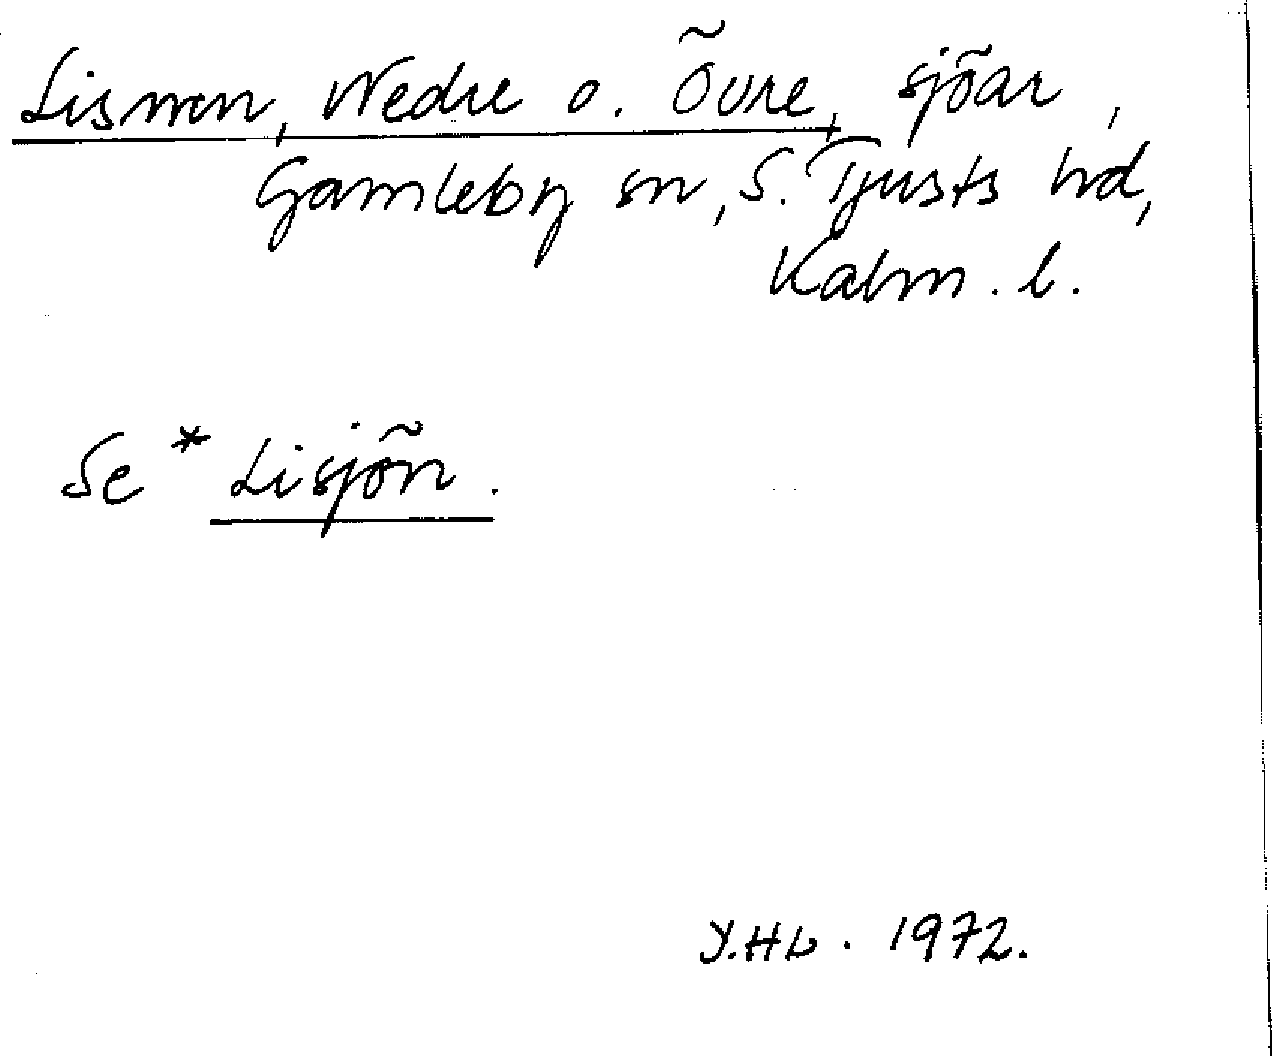 Lismen, Nedre o. Övre, sjöar,
Gamleby sn, S. Tjusts hd,
Kalm. l.
Se * Lisjön.
Y.Hb. 1972.